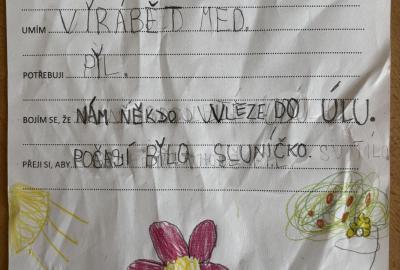 UMÍM VYRÁBĚT MED.
POTŘEBUJI PYL.
BOJÍM SE, ŽE NÁM NĚKDO VLEZE DO ÚLU.
PŘEJI SI, ABY POČASÍ BYLO SLUNÍČKO.